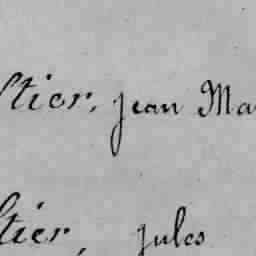 stier, Jean Ma
stier, Jules